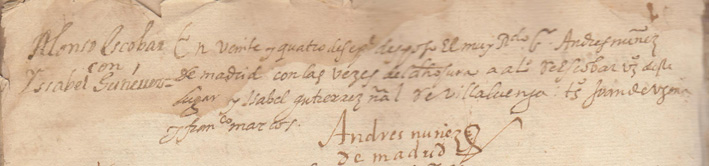 Alonso Escobar
con
Yssabel Gutierrez
En veinte y quatro de sep.e desposo El muy R.do S.r Andres nuñez
de madrid con las vezes del cura a al.o de Escobar v.o deste
lugar y Isabel gutierrez nal de Villaluenga t.s Juan de
y fran.co marcos.
Andres nuñez
De madrid